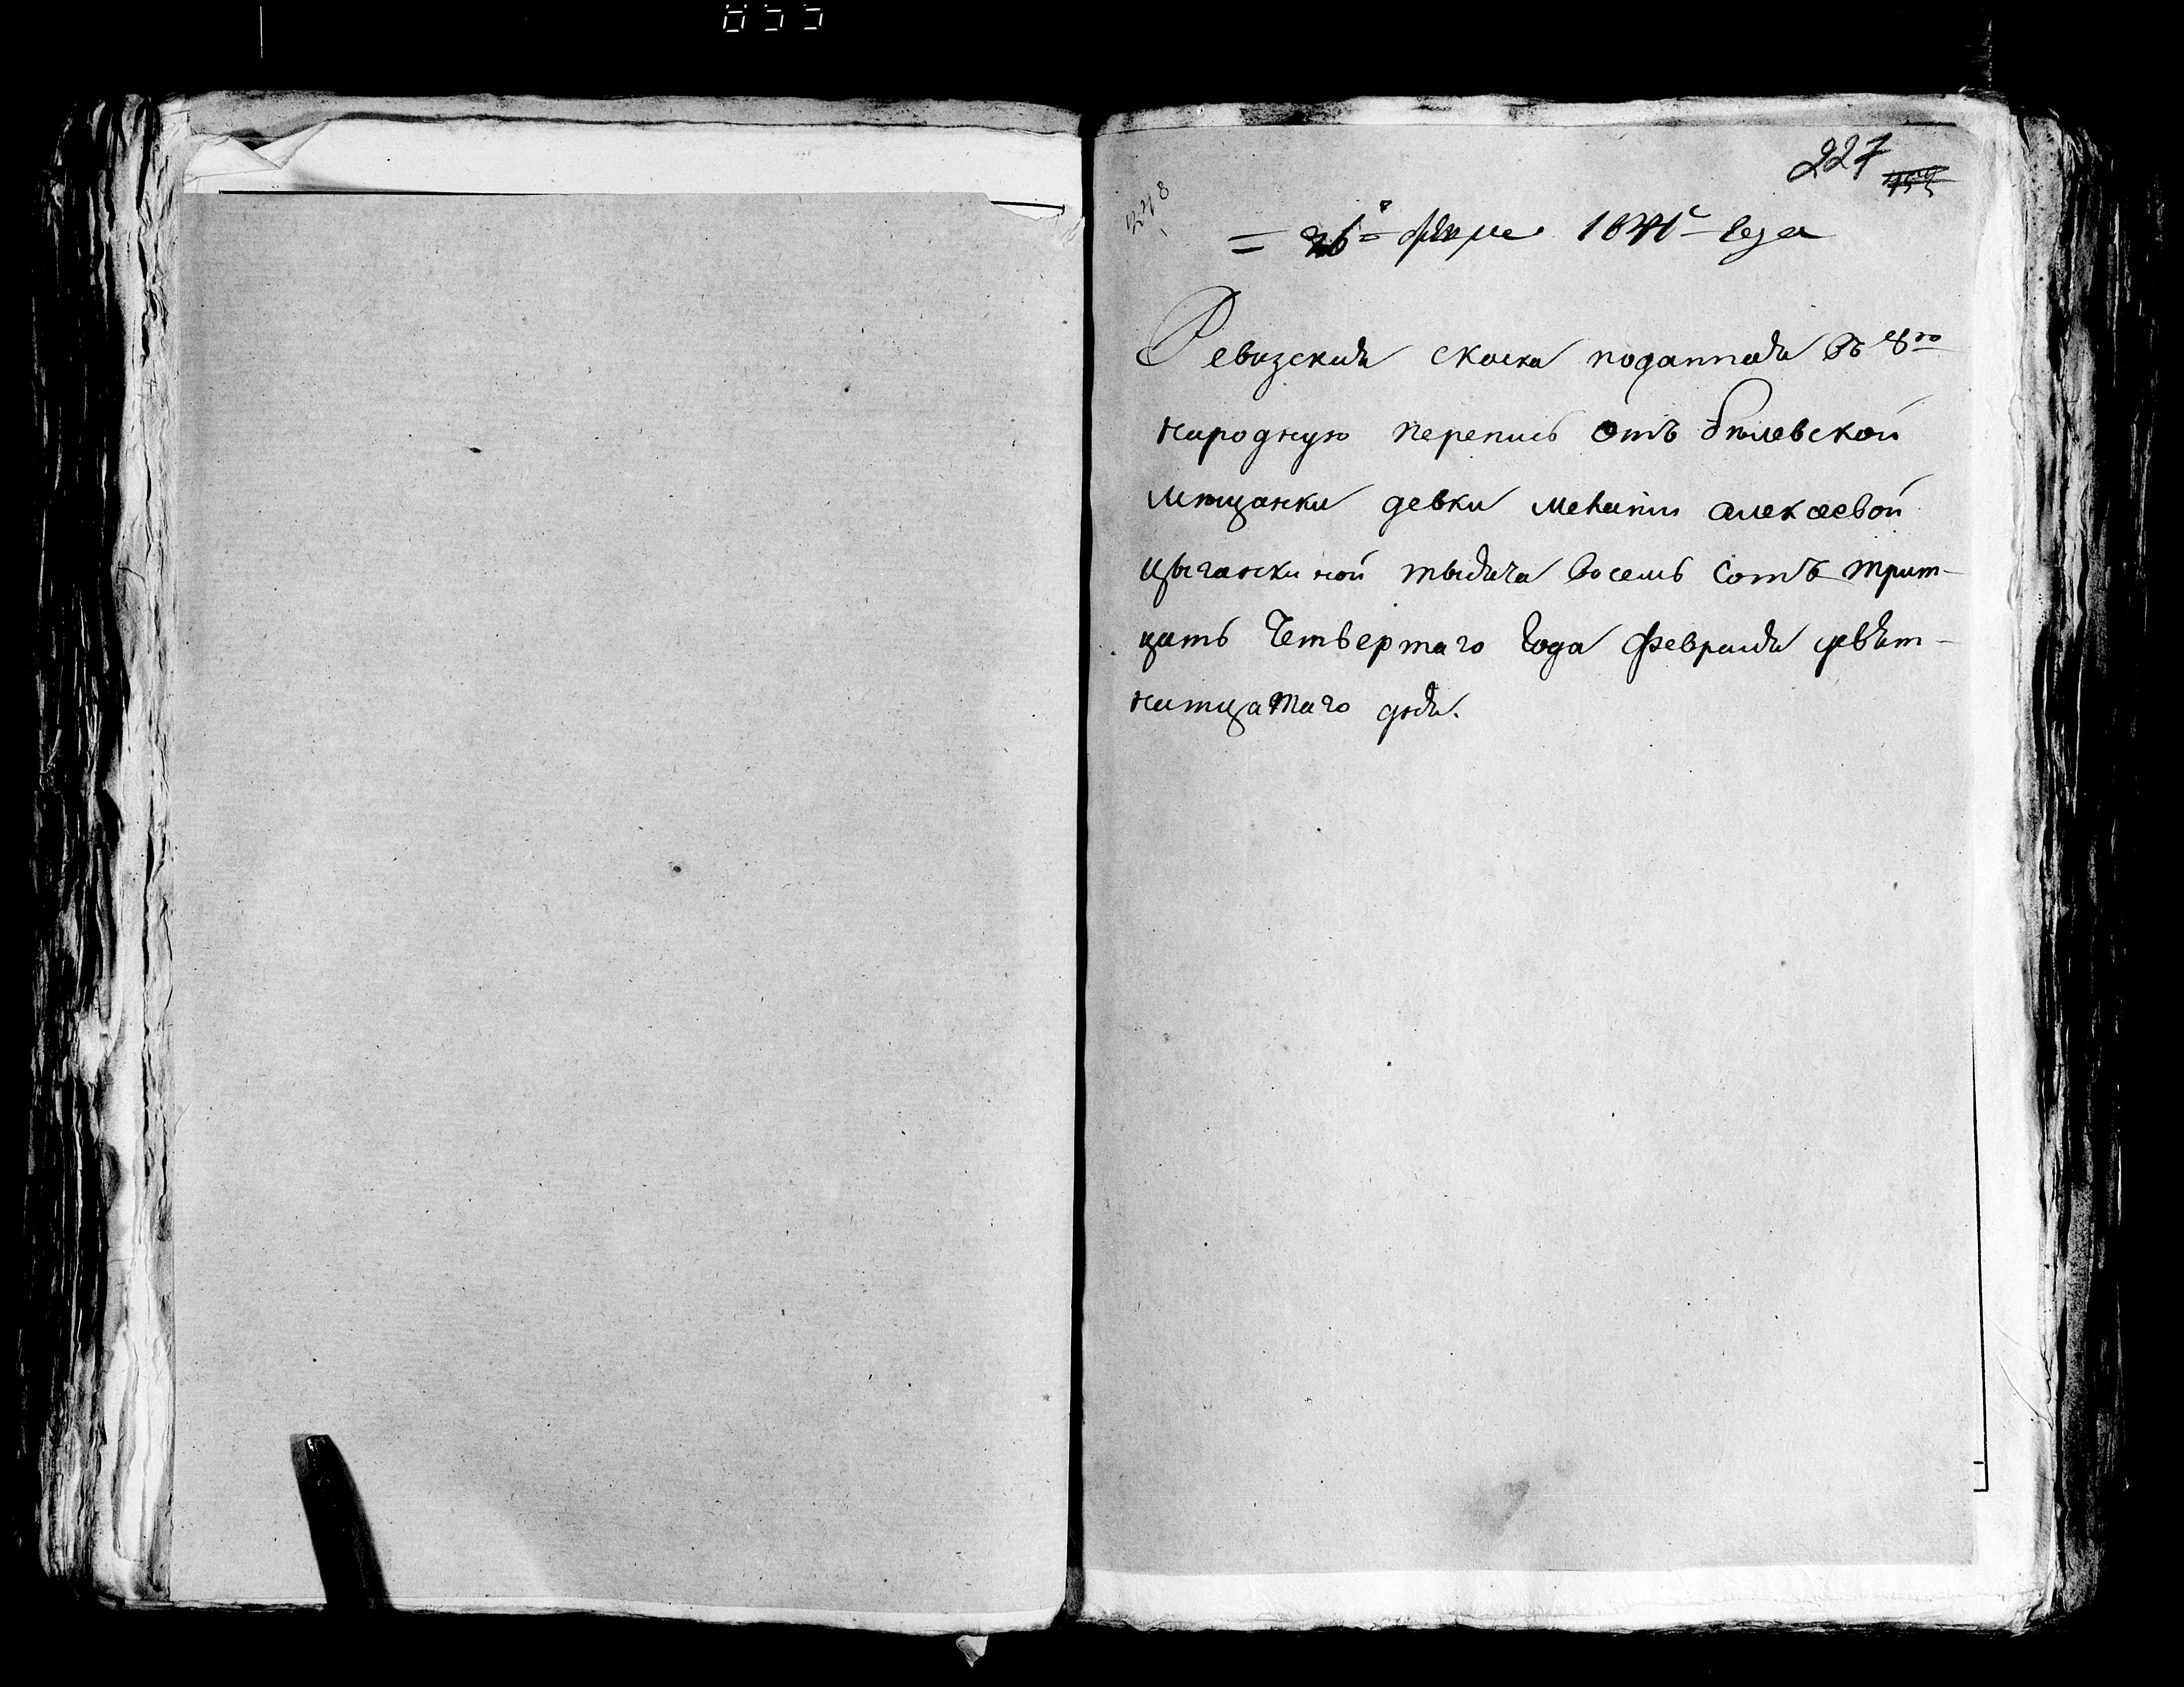 227
248
Ревизская скаска поданная въ 8ю
народную перепись отъ белевской
мещанки девки меланіи алексеевой
цыганкиной тысяча восемь сотъ трит-
цать четвертаго года февраля девят-
натцатаго дня.